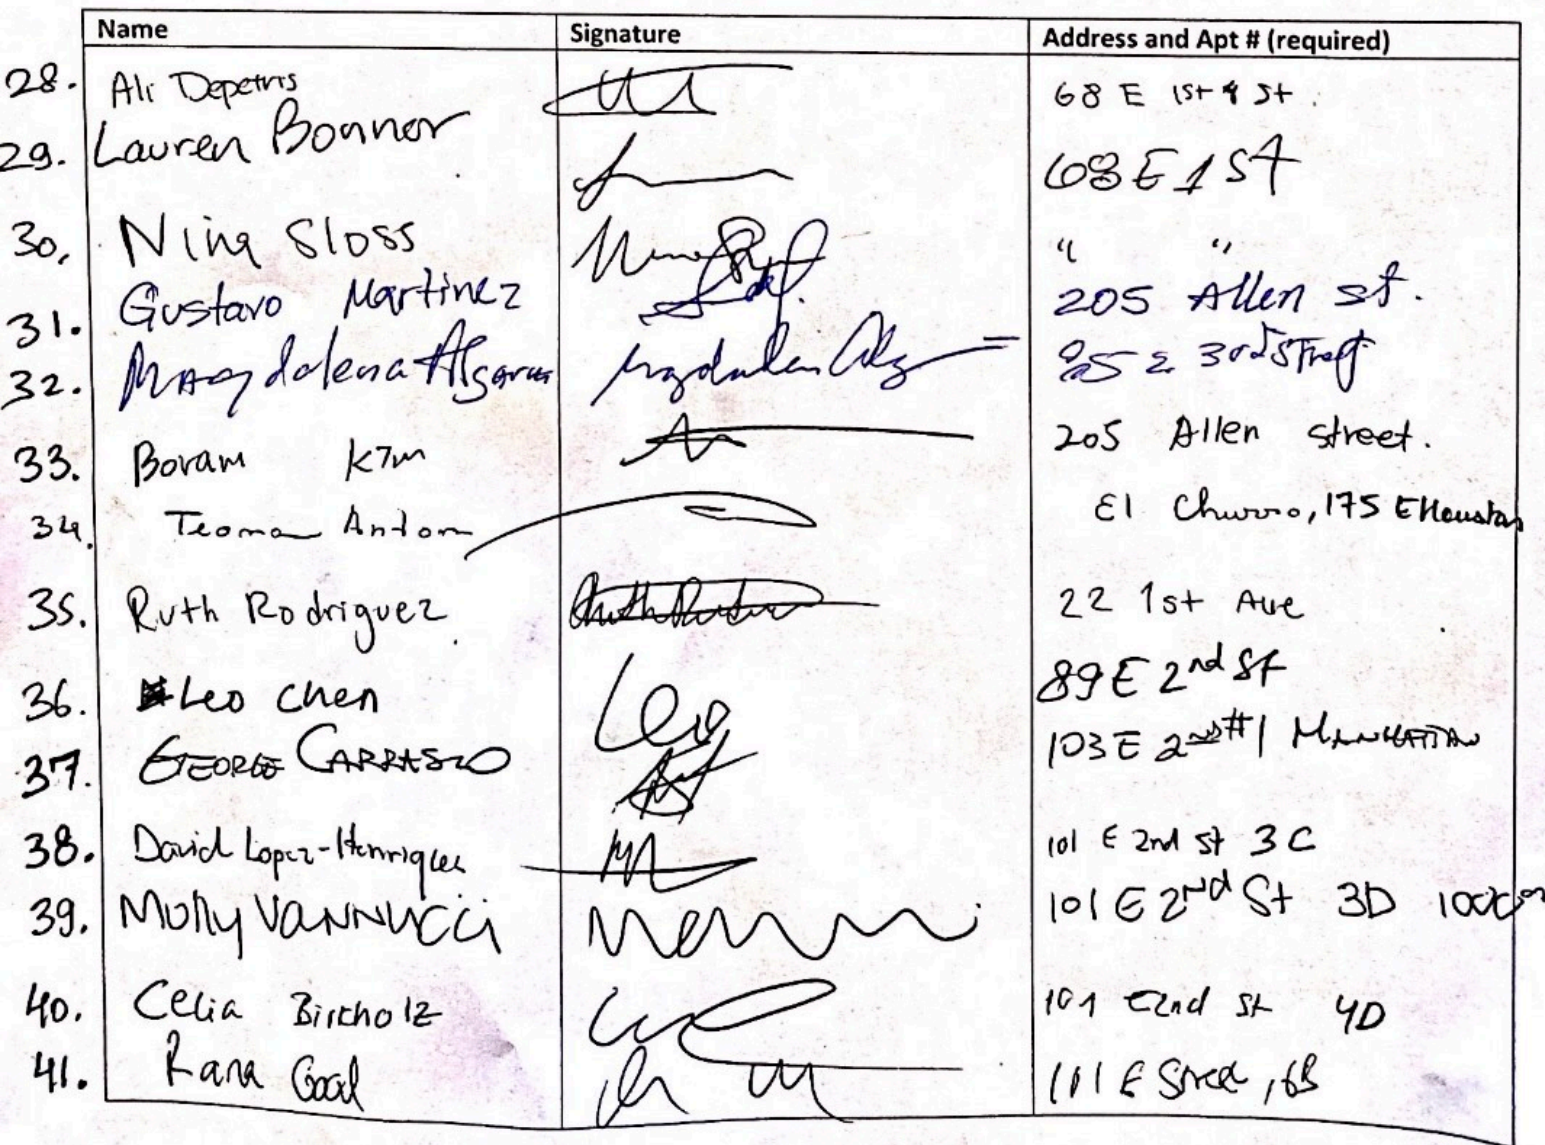 Name Signature Address and Apt # (required)
28. Ali Depetris 68 E 1st St
29. Lauren Bonner 68 E 1 ST
30. Nina Sloss " "
31. Gustavo Martinez 205 Allen st.
32. Magdalena 3rd Street
33. Boram Kim 205 Allen street.
34. Teoman El Churro, 175 E Houston
35. Ruth Rodriguez Ruth 22 1st Ave
36. Leo Chen Leo 89 E 2nd St
37. GEORGE CARRASCO 103 E 2nd #1 MANHATTAN
38. David Lopez-Henriquez 101 E 2nd St 3C
39. Molly VANNUCCi 101 E 2nd St 3D
40. Celia Birkholz 101 E2nd St 4D
41. Rana 6B